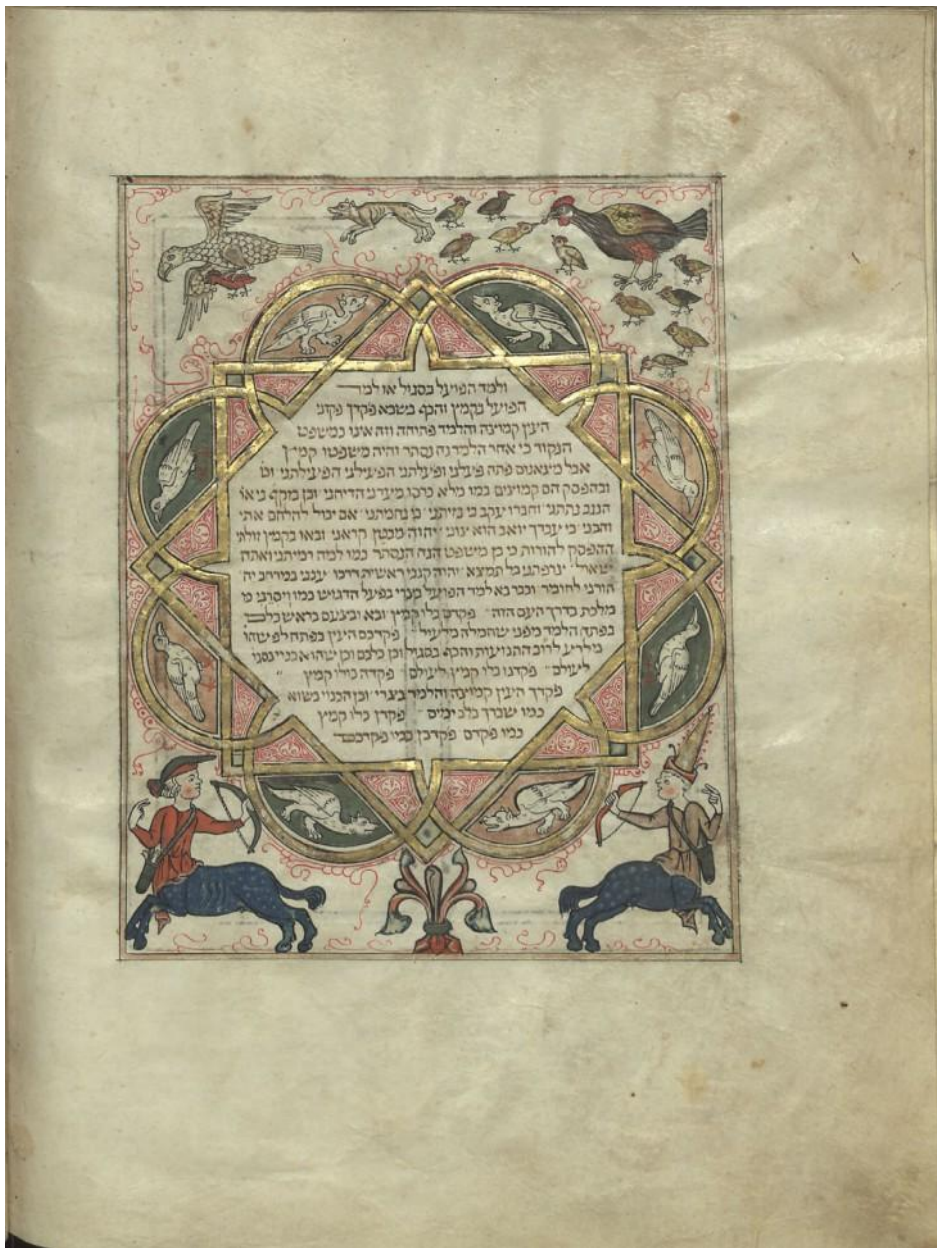 ולמד הפועל בסגול או למד
הפועל בקמץ והכף בשבא פקדך פקדני
העין קמוצה והלמד פתוחה וזה אינו כמשפט
הנקוד כי אחר הלמד נח נסתר והיה משפטו קמץ
אבל מצאנום פתח פעלני ופעלתני הפעילני הפעילתני וכו
ובהפסק הם קמוצים כמו מלא כרשו מעדני הדיחני וכן מקף גיאו
הנגב נתתני וחברו יעקב כי נחמתני אם יוכל להלחם אתי
והכני כי יעבדך יואב הוא צוני יהוה מבטן קראני ובאו בקמץ זולתי
ההפסק להורות כי כן משפט הנח הנסתר כמו למה רמיתני ואתה
שאול ירפתני כל תמצא יהוה קנני ראשית דרכו ענני במרחב יה
הורני לחומר וכבר בא למד הפועל בצרי בפעל הדגוש כמו ויסרני מ
מלכת בדרך העם הזה פקדם כלו קמץ ובא
בפתח הלמד מפני שהמלה מלעיל פקדכם העין בפתח לפי שהו
מלרע לרוב התנועות והכף בסגול וכן כלכם וכן שהוא
לעולם פקדנו כלו קמץ לעולם פקדה כולו קמץ
פקדך העין קמוצה והלמד בצרי וכן הכנוי בשוא
כמו שברך בלב ימים פקדן כלו קמץ
כמו פקדם פקדכן כמו פקדכם